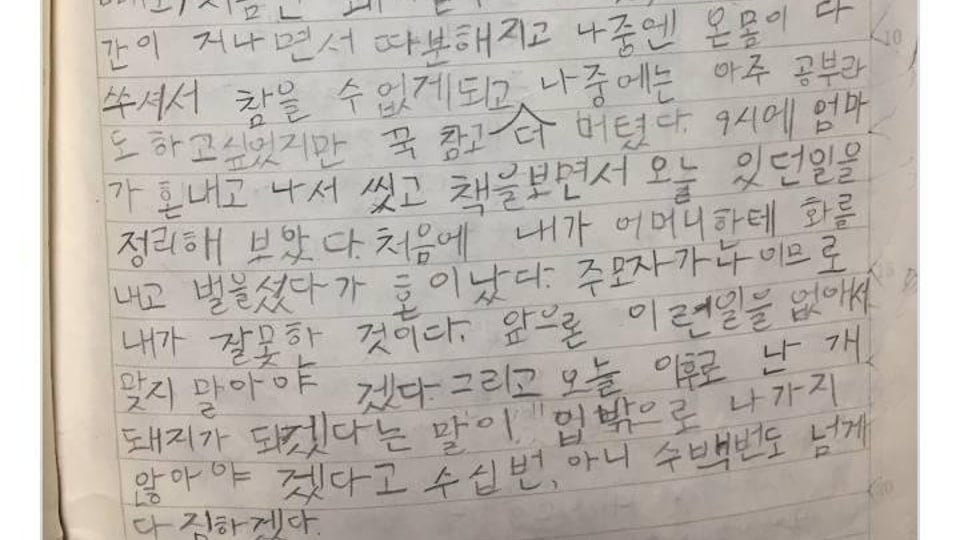 간이 지나면서 따분해지고 나중엔 온몸이 다
쑤셔서 참을 수 없게되고 나중에는 아주 공부라
도 하고싶었지만 꾹 참고 더 버텼다. 9시에 엄마
가 혼내고 나서 씻고 책을보면서 오늘 있던일을
정리해 보았다. 처음에 내가 어머니한테 화를
내고 벌을섰다가 혼이났다. 주모자가나이므로
내가 잘못한 것이다. 앞으론 이런일을 없애서
맞지 말아야 겠다. 그리고 오늘 이후로 난 개
돼지가 되겠다는 말이 입밖으로 나가지
않아야 겠다고 수십번, 아니 수백번도 넘게
다짐하겠다.